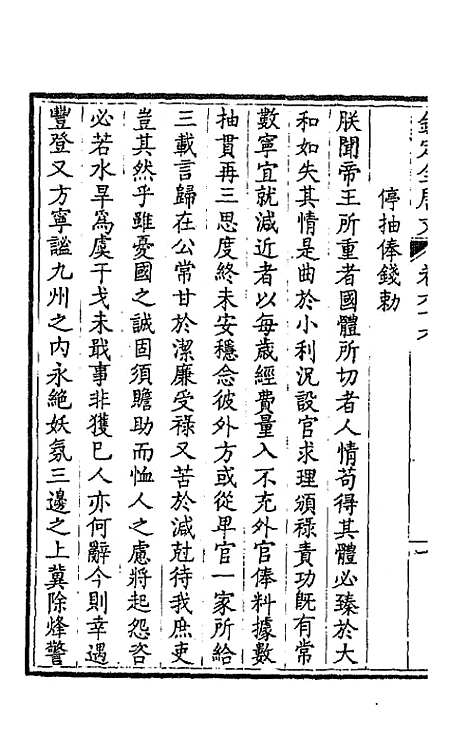 停抽俸錢勅
朕聞帝王所重者國體所切者人情苟得其體必臻於大
和如失其情是曲於小利況設官求理頒祿責功旣有常
數寧宜就減近者以每歳經費量入不充外官俸料據數
抽貫再三思度終未安穩念彼外方或從卑官一家所給
三載言歸在公常甘於潔廉受祿又苦於減尅待我庶吏
豈其然乎雖憂國之誠固須贍助而恤人之慮將起怨咨
必若水旱爲虞干戈未戢事非獲已人亦何辭今則幸遇
豐登又方寧謐九州之内永絕妖氛三邊之上冀除烽警